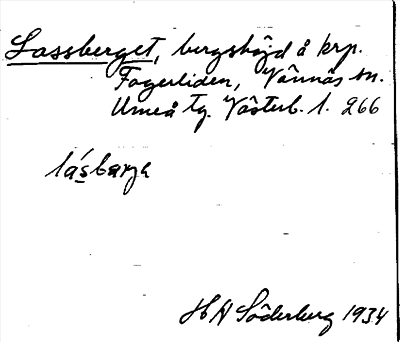 Lassberget, bergshöjd å krp.
Fagerliden, Vännäs sn.
Umeå tg. Västerb. l. 266
lásbarjə
H A Söderberg 1934